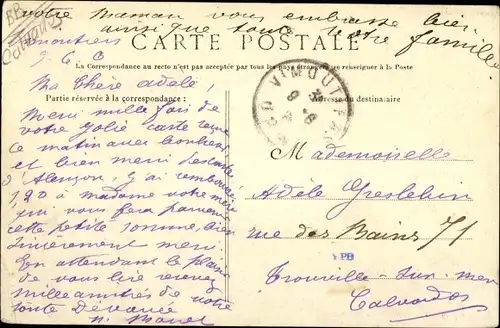 votre Maman vous embrasse bien
ainsi que toute votre famille
CARTE POSTALE
La Correspondance au recto n'est pas acceptée par tous les pays étrangers, se renseigner à la Poste
Partie réservée à la correspondance :
Adresse du destinataire
VIMOUTIERS
Ma chère adèle,
Merci mille fois de
votre jolie carte reçue
ce matin avec bonheur
et bien merci des cartes
d'Alençon, j'ai remboursé
1,20 à madame votre mère
qui vous fera parvenir
cette petite somme, bien
sincèrement merci.
En attendant le plaisir
de vous lire recevez
mille amitiés de votre
toute dévouée
Mademoiselle
Adèle
rue des Bains 71
Trouville-sur-mer
Calvados